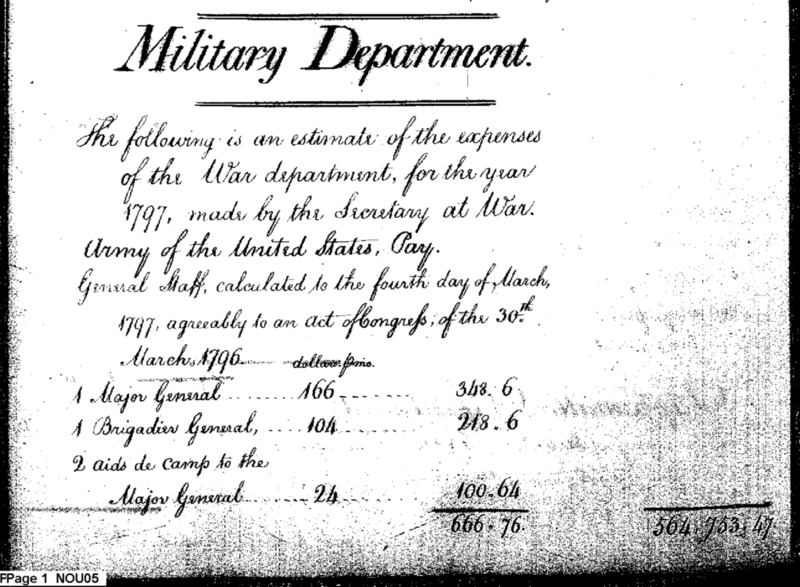 Military Department.
The following is an estimate of the expenses
of the War department, for the year
1797, made by the Secretary at War.
Army of the United States, Pay.
General Staff, calculated to the fourth day of March,
1797, agreeably to an act of Congress, of the 30.th
March 1796 dollars pr mo.
1 Major General ....... 166 ........ 348.6
1 Brigadier General, .... 104 ........ 218.6
2 aids de camp to the
Major General ........ 24 ........ 100.64
666.76. 564.733.47
PPage 1 NOU05